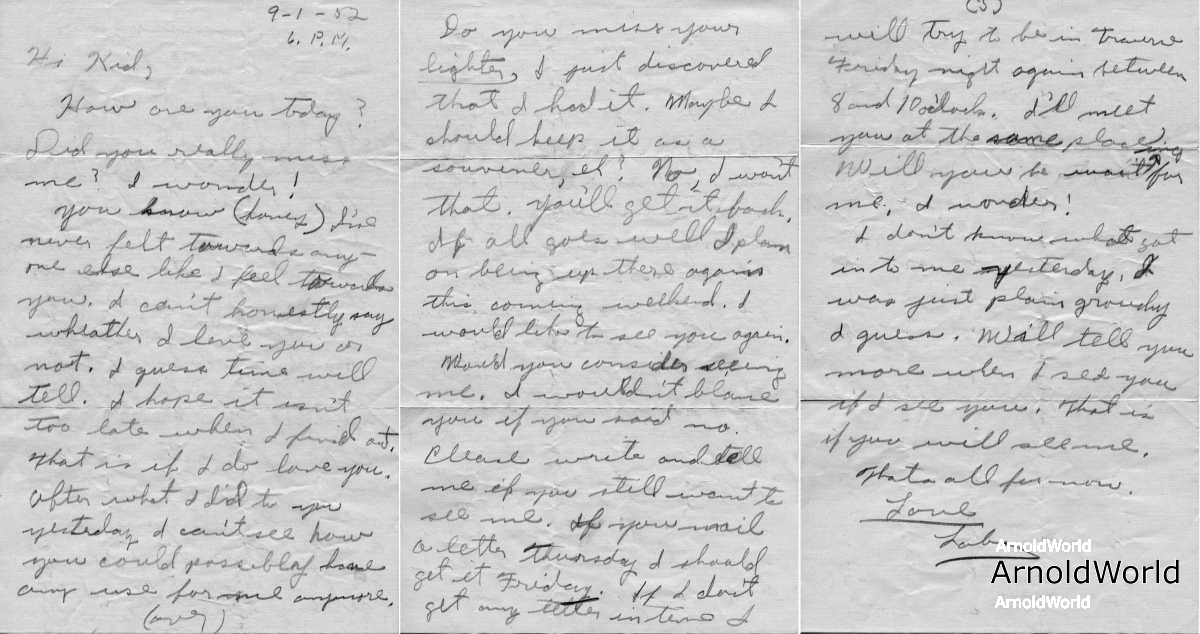 9-1-52
6. P.M.
Hi Kid,
How are you today?
Did you really miss
me? I wonder!
You know (honey) I've
never felt towards any-
one else like I feel towards
you. I can't honestly say
wheather I love you or
not. I guess time will
tell. I hope it isn't
too late when I find out.
That is if I do love you.
After what I did to you
yesterday I can't see how
you could possiblay have
any use for me anymore.
(over)
Do you miss your
lighter, I just discovered
that I had it. Maybe I
should keep it as a
souvenier, eh? No, I won't
that. You'll get it back.
If all goes well I plan
on being up there again
this coming weekend. I
would like to see you again.
Would you consider seeing
me. I wouldn't blame
you if you said no.
Please write and tell
me if you still want to
see me. If you mail
a letter Thursday I should
get it Friday. If I don't
get any letter in time I
(3)
will try to be in Traverse
Friday night again between
8 and 10 o'clock. I'll meet
you at the same place,
Will you be waiting for
me, I wonder!
I don't know what got
in to me yesterday. I
was just plain grouchy
I guess. Will tell you
more when I see you
if I see you. That is
if you will see me.
Thats all for now.
Love
ArnoldWorld
ArnoldWorld
ArnoldWorld